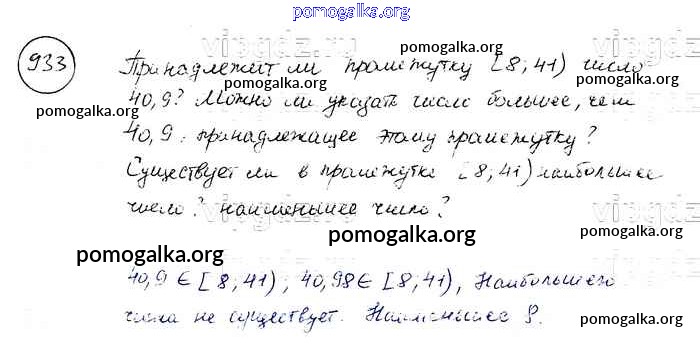 pomogalka.org
933
Принадлежит ли промежутку [8; 41) число
pomogalka.org
pomogalka.org
40,9? Можно ли указать число большее, чем
40,9, принадлежащее этому промежутку?
pomogalka.org
Существует ли в промежутке [8; 41) наибольшее
число? наименьшее число?
vipgdz
pomogalka.org
pomogalka.org
pomogalka.org
40,9 ∈ [8; 41), 40,98 ∈ [8; 41), Наибольшего
числа не существует. Наименьшее 8.
pomogalka.org
pomogalka.org